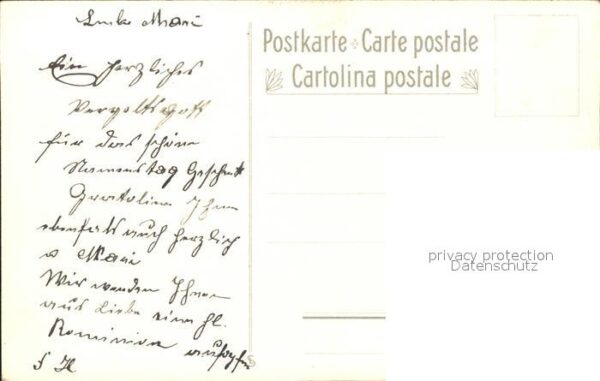 Liebe Mari
Ein herzliches
Vergeltsgott
für das schöne
Namenstag Geschenk
Gratuliere Ihnen
ebenfals auch herzlich
Mari
Wir werden Ihnen
aus Liebe eine hl.
aufopfern
Postkarte Carte postale
Cartolina postale
privacy protection
Datenschutz